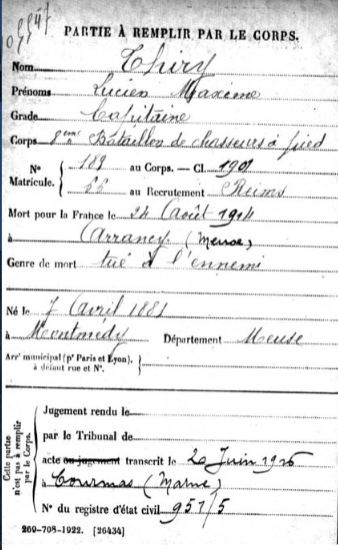 PARTIE À REMPLIR PAR LE CORPS.
Nom Thiry
Prénoms Lucien Maxime
Grade Capitaine
Corps 8ème Bataillon de chasseurs à pied
N° Matricule. { 189 au Corps. — Cl. 1901
22 au Recrutement Reims
Mort pour la France le 24 Août 1914
à Arrancy (Meuse)
Genre de mort tué à l'ennemi
Né le 7 Avril 1881
à Montmédy Département Meuse
Arr^t municipal (p^r Paris et Lyon), à défaut rue et N°.
Cette partie n'est pas à remplir par le Corps.
Jugement rendu le
par le Tribunal de
acte ou jugement transcrit le 20 Juin 1926
à Courmas (Marne)
N° du registre d'état civil 957/5
269-708-1922. [26434]